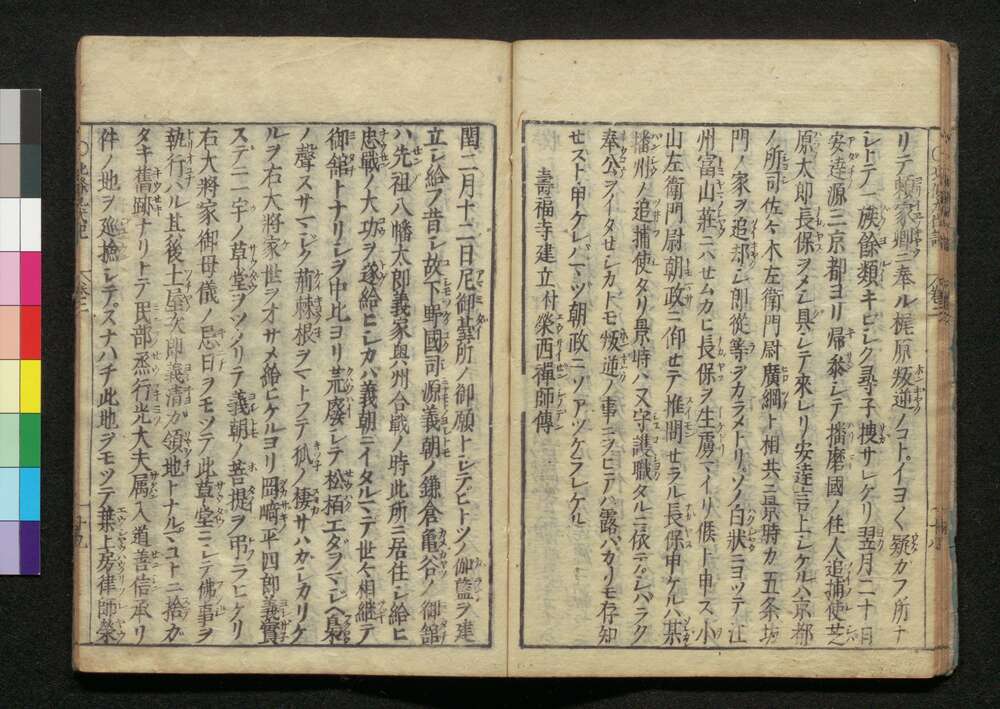 リテ頼家卿ニ奉ル梶原叛逆ノコトイヨ〱疑ガフ所ナ
シトテ一族餘類キビシク尋子捜サレケリ翌月二十日
安達源三京都ヨリ帰参シテ播磨國ノ住人追捕使芝
原太郎長保ヲメシ具シテ來レリ安達言上シケルハ京都
ノ所司佐々木左衛門尉廣綱ト相共ニ景時カ五条坊
門ノ家ヲ追却シ郎從等ヲカラメトリソノ白状ニヨツテ江
州富山莊ニハセムカヒ長保ヲ生虜マイリ候ト申ス小
山左衛門尉朝政ニ仰セテ推問セラル長保申ケルハ某
播州ノ追捕使タリ景時ハ又守護職タルニ依テシバラク
奉公ヲイタセシカトモ叛逆ノ事ニヲヒテハ露バカリモ存知
セスト申ケレハマツ朝政ニソアツケラレケル
壽福寺建立付榮西禪師傳
閏二月十二日尼御臺所ノ御願トシテヒトツノ伽藍ヲ建
立シ給フ昔シ故下野國司源義朝ノ鎌倉亀谷ノ御舘
ハ先祖八幡太郎義家奥州合戦ノ時此所ニ居住シ給ヒ
忠戦ノ大功ヲ遂給ヒシカバ義朝ニイタルマデ世々相継テ
御舘トナリシヲ中比ヨリ荒廢シテ松栢エダヲマジヘ梟
ノ聲スサマシク荊棘根ヲマトフテ狐ノ棲サハガシカリケ
ルヲ右大將家世ヲオサメ給ヒケルヨリ岡﨑平四郎義實
ステニ一宇ノ草堂ヲツクリテ義朝ノ菩提ヲ弔ラヒケリ
右大將家御母儀ノ忌日ヲモツテ此草堂ニシテ佛事ヲ
執行ハル其後土屋次郎義清カ領地トナル
タキ舊跡ナリトテ民部丞行光大夫属入道善信承リ
件ノ地ヲ巡撿シテスナハチ此地ヲモツテ葉上房律師榮